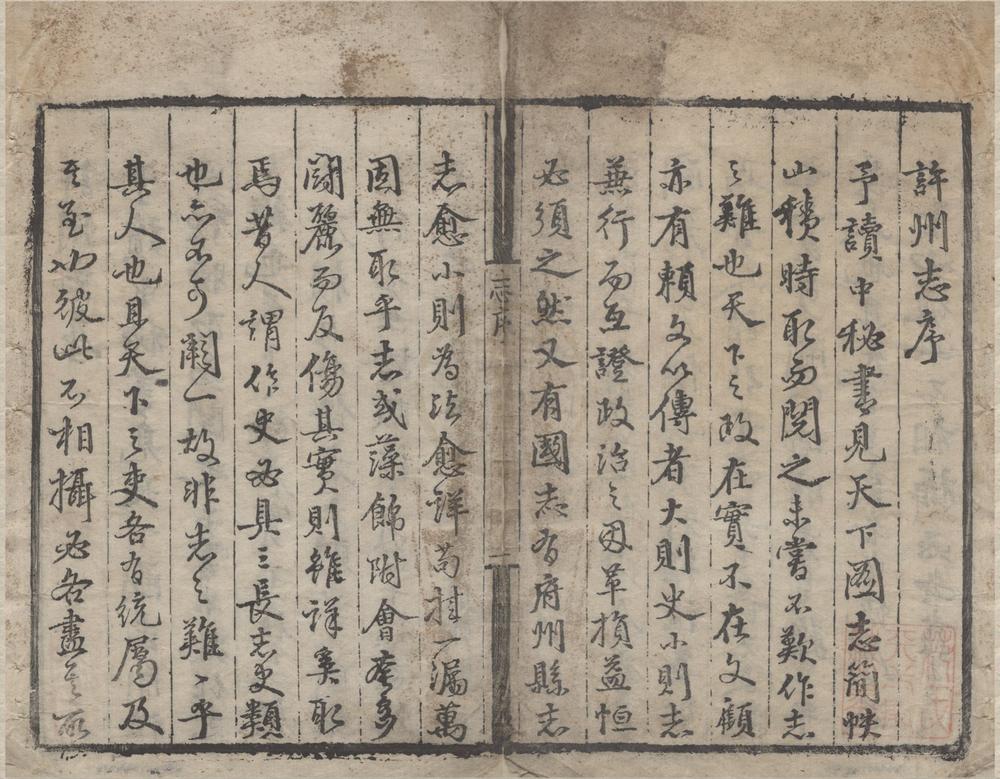 許州志序
予讀中秘書見天下圖志簡帙
山積時取而閱之未嘗不歎作志
之難也天下之政在實不在文顧
亦有賴文以傳者大則史小則志
兼行而互證政治之因革損益恒
必須之然又有國志有府州縣志
志序
一
志愈小則為法愈詳苟挂一漏萬
固無取乎志或藻飾附會奓多
鬪麗而反傷其實則雖詳奚取
焉昔人謂作史必具三長志史類
也亦不可闕一故非志之難難乎
其人也且天下之吏各有統屬及
其至也彼此不相攝必各盡其所